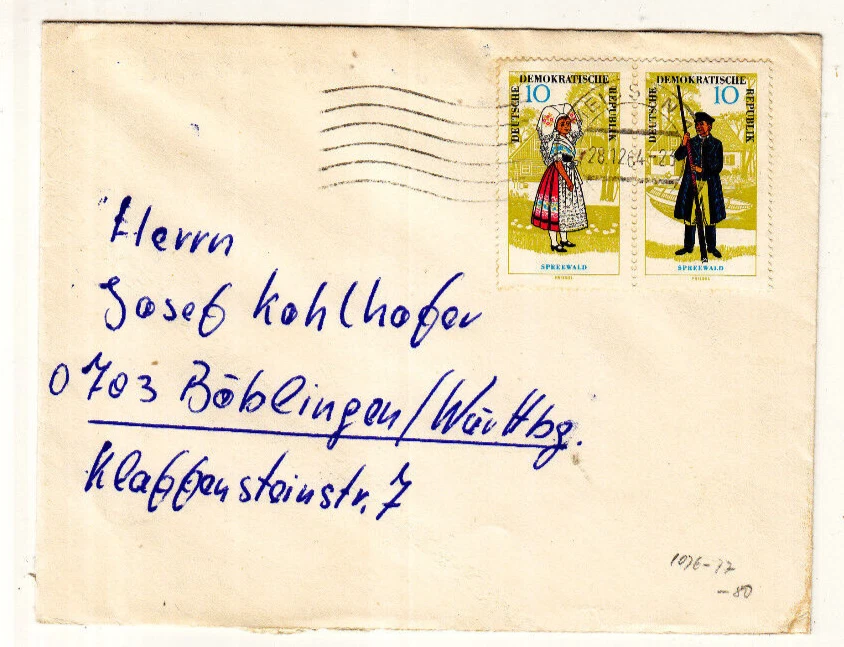 DEUTSCHE DEMOKRATISCHE REPUBLIK
10
SPREEWALD
DEUTSCHE DEMOKRATISCHE REPUBLIK
10
SPREEWALD
28.12.64-2
Herrn
Josef Kohlhofer
0 703 Böblingen/Württbg.
Klaffensteinstr. 7
1076-77
-80